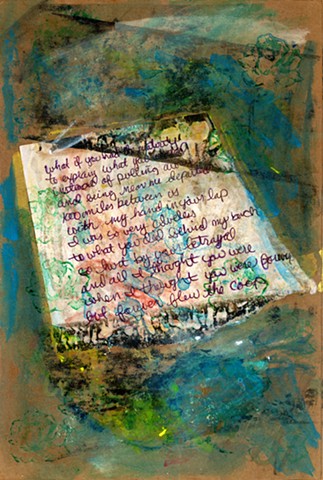 What if you had
to explain what you
instead of pulling away
and being near me
miles between us
with my hand in your lap
I was so very clueless
to what you did behind my back
so hurt by your betrayal
and all I thought you were
when I thought you were
flew the coop